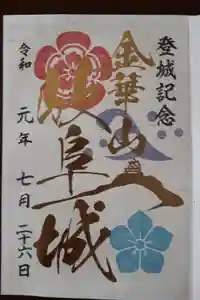 登城記念
金華山
岐阜城
令和元年七月二十六日